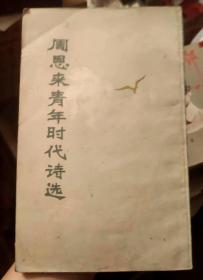 周恩来青年时代诗选